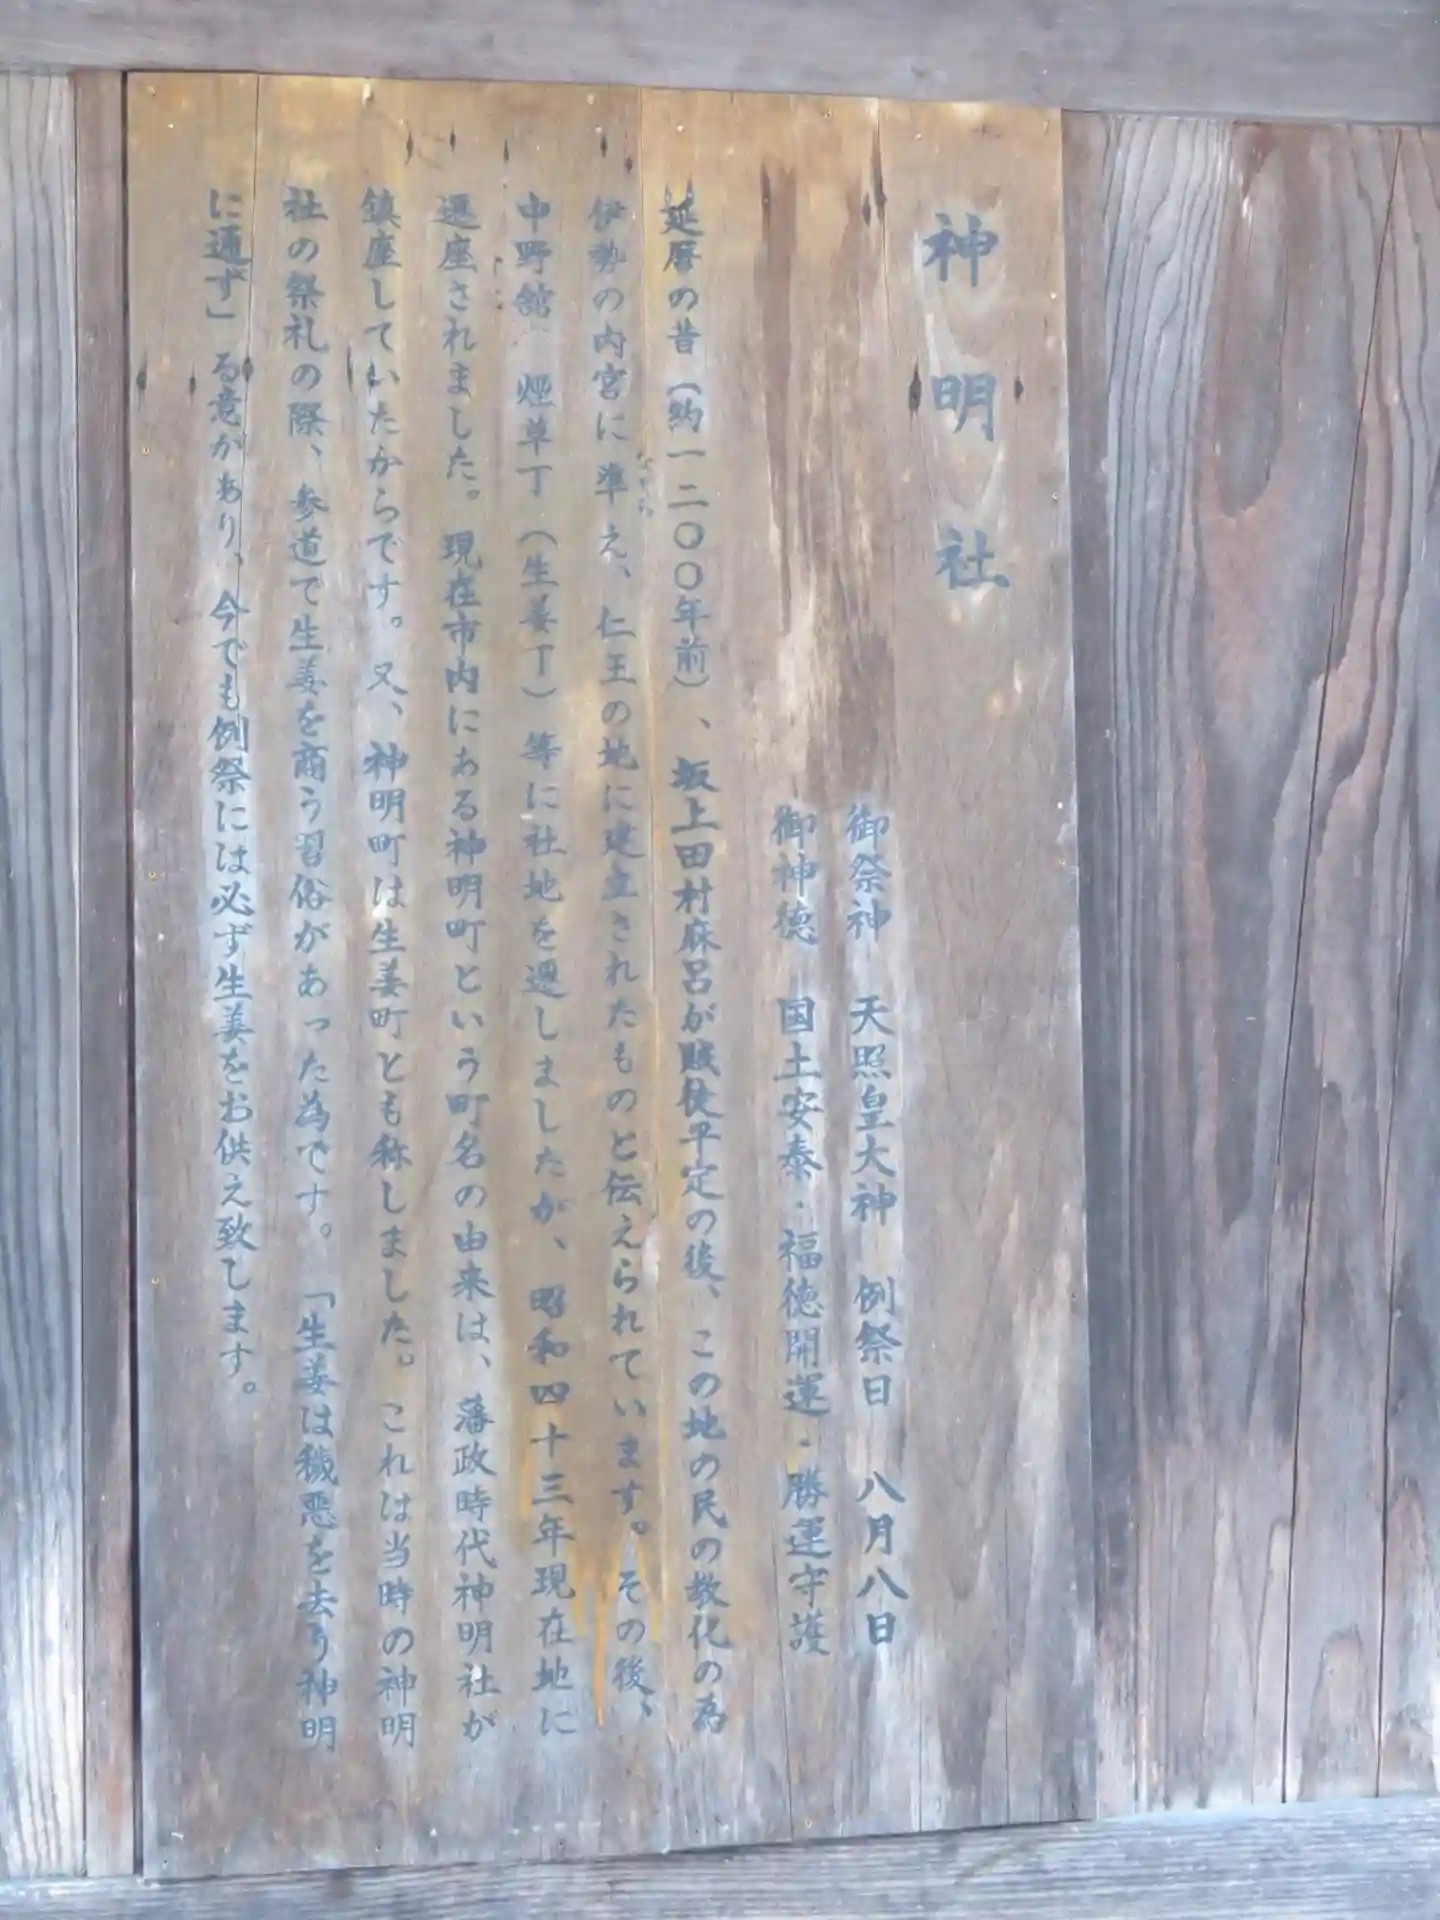 神明社
御祭神 天照皇大神 例祭日 八月八日
御神徳 国土安泰・福徳開運・勝運守護
延暦の昔(約一二〇〇年前)、坂上田村麻呂が賊徒平定の後、この地の民の教化の為
伊勢の内宮に準え、仁王の地に建立されたものと伝えられています。その後、
中野舘 煙草丁(生姜丁)等に社地を遷しましたが、昭和四十三年現在地に
遷座されました。現在市内にある神明町という町名の由来は、藩政時代神明社が
鎮座していたからです。又、神明町は生姜町とも称しました。これは当時の神明
社の祭礼の際、参道で生姜を商う習俗があった為です。「生姜は穢悪を去り神明
に通ず」る意があり、今でも例祭には必ず生姜をお供え致します。